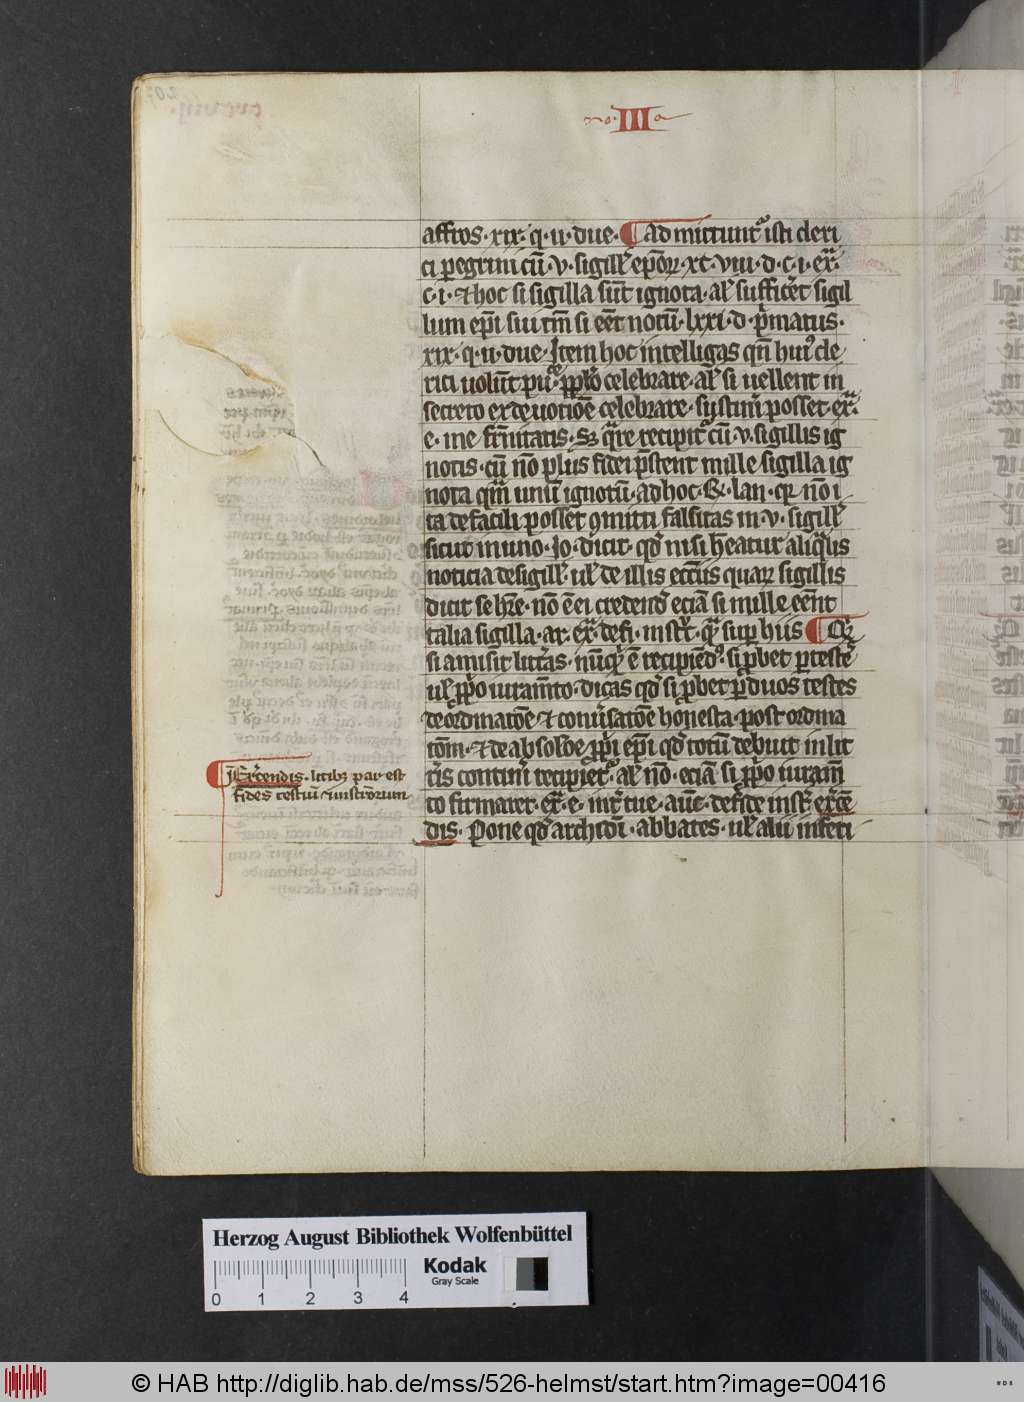 III
affros · xix · q · ii · due · ¶ Ad mictuntᷣ isti cleri
ci peregrini cū · v · sigill' ep̄oꝝ · xc · viii · d · c · i · exᷓ
c · i · ⁊ hoc si sigilla sūt ignota · al' sufficēt sigil
lum ep̄i sui tm̄ si eēt notū · lxxi · d · p̄matus ·
xix · q · ii · due · Item hoc intelligas qn̄ huiꝰ cle
rici uolūt celebrare · al' si uellent in
secreto ex deuotiōe celebrare · sustineri posset · exᷓ ·
e · me fr̄nitatis · Sꝫ qᷓre recipitᷣ cū · v · sigillis ig
notis · cū nō plus fidei p̄stent mille sigilla ig
nota qm̄ unū ignotū · ad hoc · lan · qꝛ nō i
ta de facili possēt ꝯmitti falsitas in · v · sigill'
sicut in uno · Jo · dicit · qd̄ nisi h̄eatur aliqᷓlis
noticia de sigill' · ul' de illis ecc̄iis quaꝝ sigillis
dicit se h̄re · nō ē ei credend̄ eciā si mille eēnt
talia sigilla · ar · exᷓ · de fi · instr̄ · qᷓ sup hiis ¶ Qꝫ
si amisit litt̄as · nūqd̄ ē recipiēdꝰ · si ꝓbet per teste
ul' ꝓpᵒ iuram̄to · dicas qd̄ si ꝓbet ꝑ duos testes
de ordinatōe ⁊ conuersatōe honesta · post ordina
tōm · ⁊ de absolōe ꝓpi ep̄i qd̄ totū debuit in litt
ris contineri recipietᷣ · al' nō · eciā si ꝓpᵒ iuram̄
to firmaret · exᷓ · e · int̄ tue · auc̄ · de fide instr̄ · exᷓcē
dis · Pone qd̄ archidi · abbates · ul' alii inferi
¶ Exᷓcendis · litibꝫ par est
fides testiū ⁊ instr̄orum
Herzog August Bibliothek Wolfenbüttel
Kodak
Gray Scale
0 1 2 3 4
© HAB http://diglib.hab.de/mss/526-helmst/start.htm?image=00416